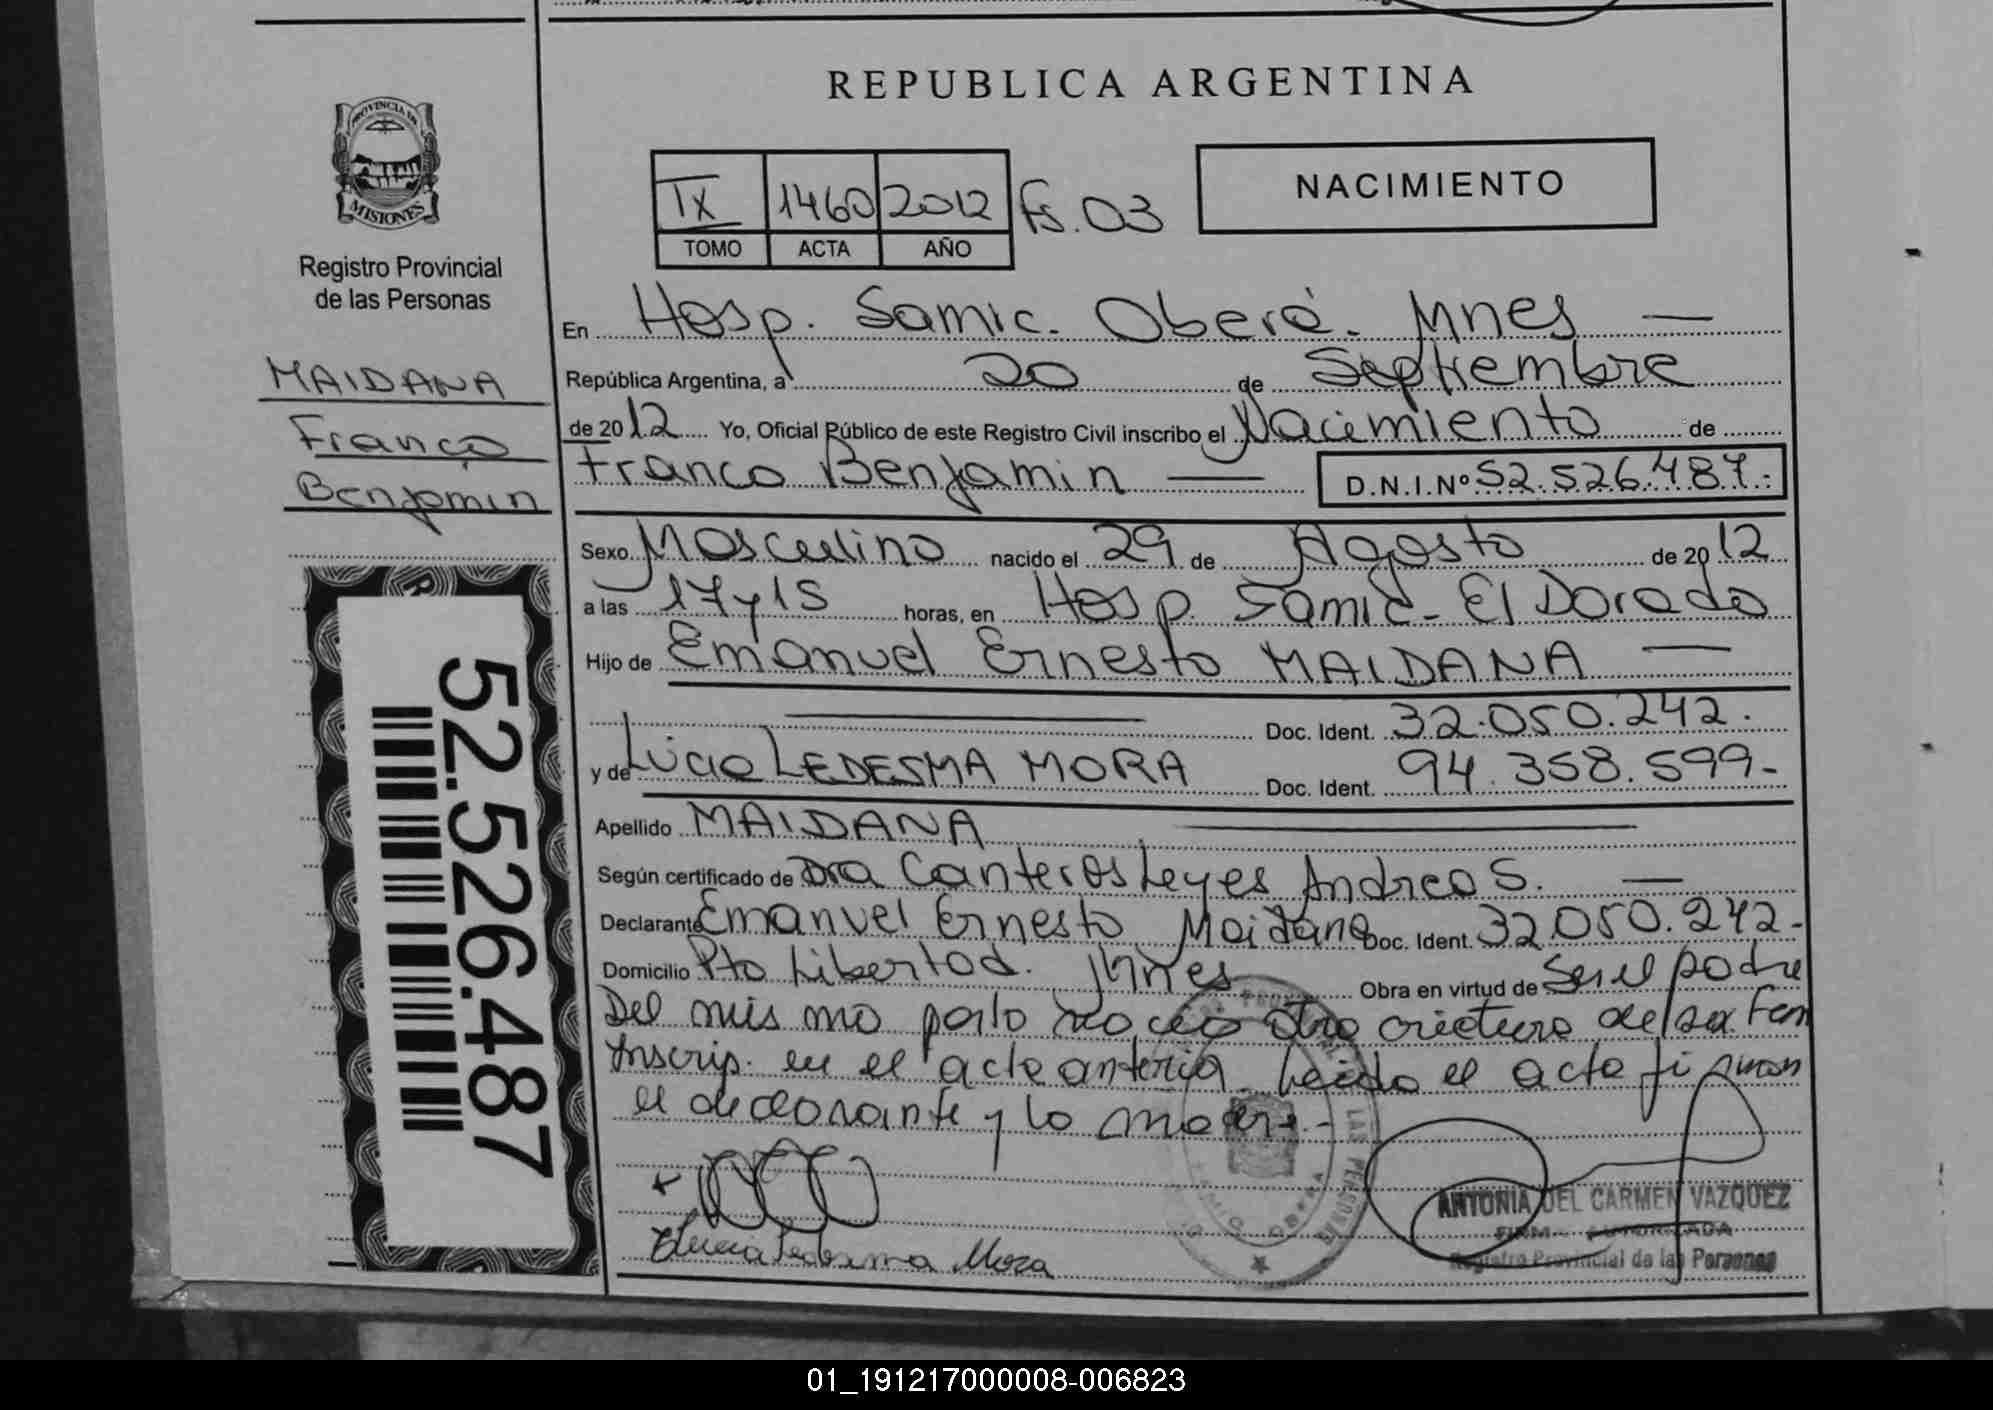 REPUBLICA ARGENTINA
PROVINCIA DE
MISIONES
Registro Provincial
de las Personas
MAIDANA
Franco
Benjamin
52.526.487
IX 1460 2012 Fs.03
TOMO ACTA AÑO
NACIMIENTO
En Hosp. Samic. Oberá. Mnes
República Argentina, a 20 de Septiembre
de 2012 Yo, Oficial Público de este Registro Civil inscribo el Nacimiento de
Franco Benjamin D.N.I.Nº 52.526.487.-
Sexo Masculino nacido el 29 de Agosto de 2012
a las 17 y 15 horas, en Hosp. Samic - El Dorado
Hijo de Emanuel Ernesto MAIDANA
Doc. Ident. 32.050.242.
y de Lucia LEDESMA MORA Doc. Ident. 94.358.599-
Apellido MAIDANA
Según certificado de Dra Canteros Leyes Andrea S.
Declarante Emanuel Ernesto Maidana Doc. Ident. 32.050.242-
Domicilio Pto Libertad. Mnes Obra en virtud de Ser el padre
Del mismo parto nacio otra criatura del sex Fem
Inscrip. en el acta anterior. Leida el acta firman
el declarante y la madre.-
Lucia Ledesma Mora
ANTONIA DEL CARMEN VAZQUEZ
FIRMA AUTORIZADA
Registro Provincial de las Personas
01_191217000008-006823